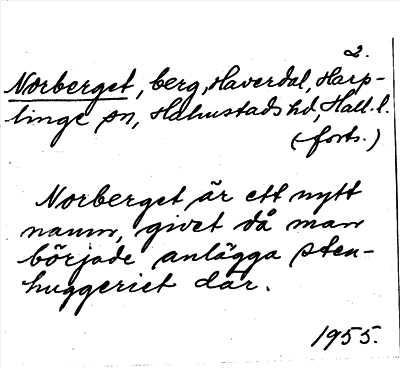 2.
Norberget, berg, Haverdal, Harp-
linge sn, Halmstads hd, Hall. l.
(forts.)
Norberget är ett nytt
namn, givet då man
började anlägga sten-
huggeriet där.
1955.